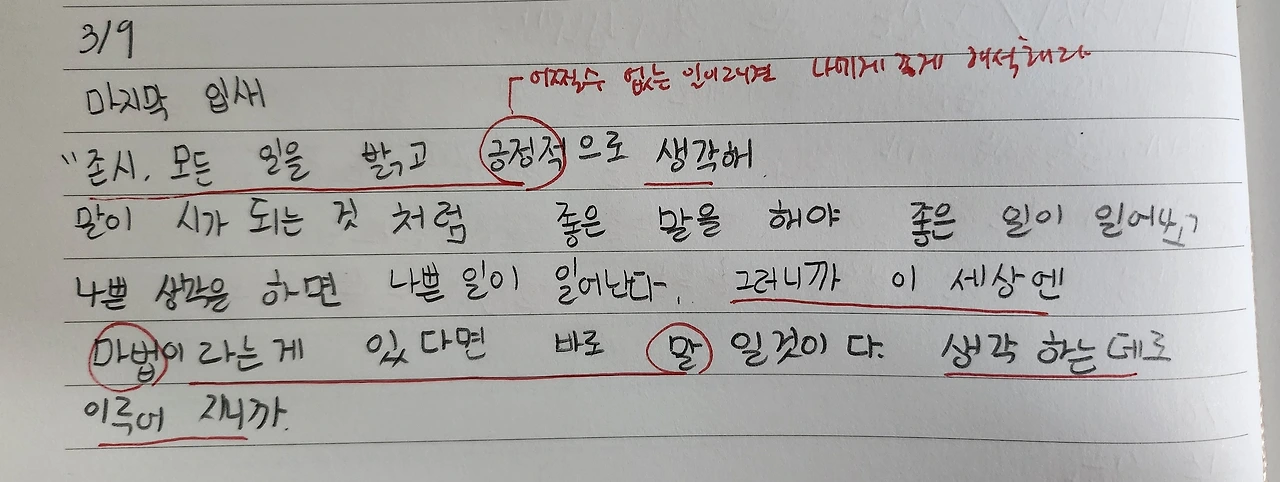 3/9
어쩔수 없는 일이라면 나에게 좋게 해석해라
마지막 입새
"존시. 모든 일을 밝고 긍정적으로 생각해.
말이 시가 되는 것 처럼 좋은 말을 해야 좋은 일이 일어나고
나쁜 생각을 하면 나쁜 일이 일어난다. 그러니까 이 세상엔
마법이라는게 있다면 바로 말 일것이다. 생각 하는데로
이루어 지니까.